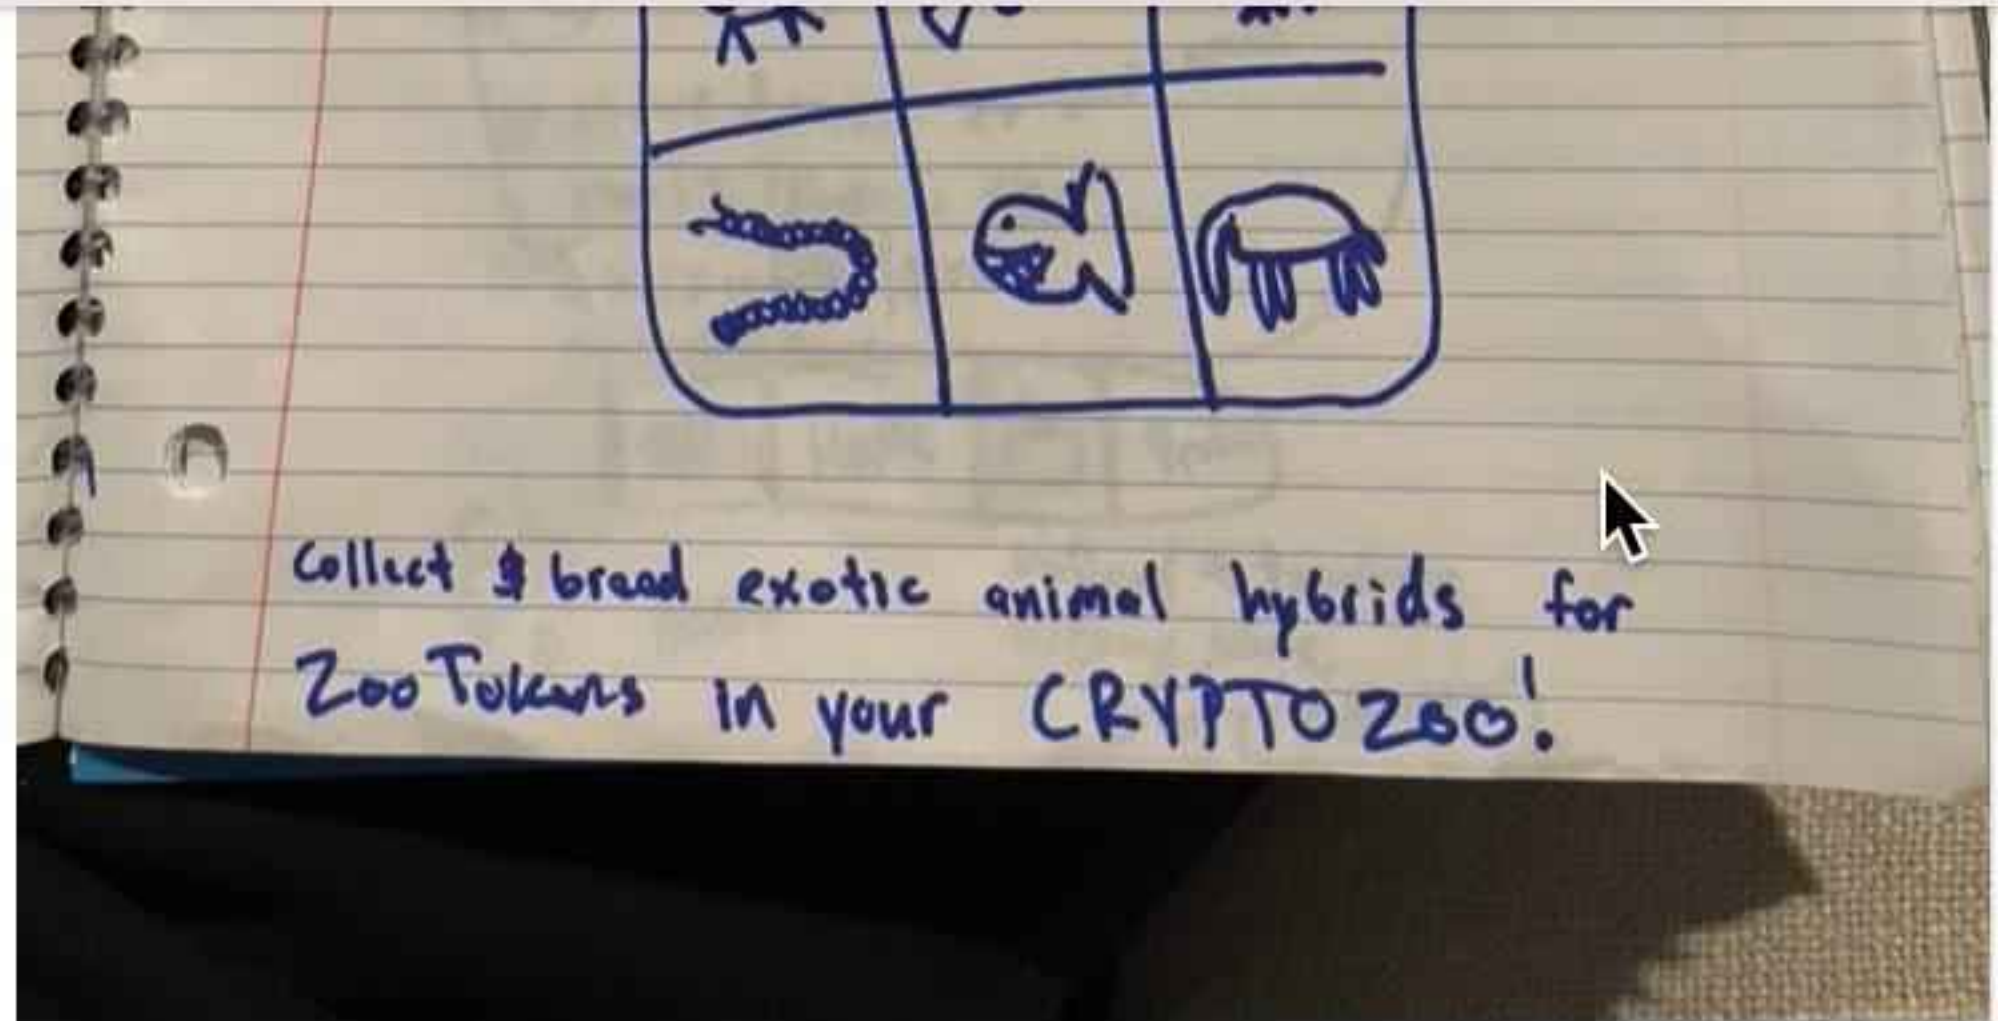 Collect & breed exotic animal hybrids for
Zoo Tokens in your CRYPTO ZOO!